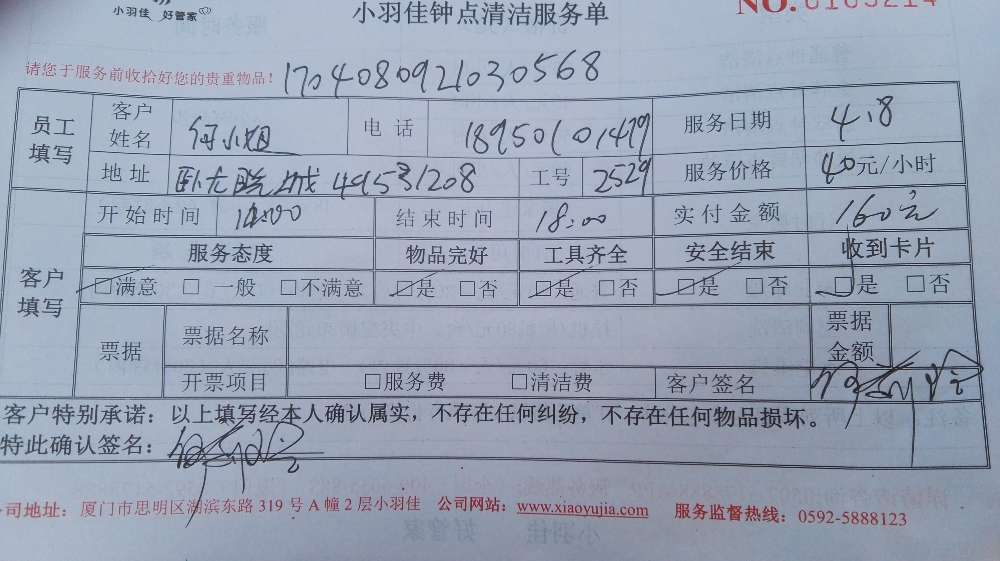 小羽佳 好管家
小羽佳钟点清洁服务单
NO. 0105214
请您于服务前收拾好您的贵重物品! 170408092103０568
员工填写 客户姓名 何小姐 电话 18950101479 服务日期 4.8
地址 卧龙晓城 1208 工号 2529 服务价格 40元/小时
客户填写 开始时间 14:00 结束时间 18:00 实付金额 160元
服务态度 物品完好 工具齐全 安全结束 收到卡片
☑满意 □一般 □不满意 ☑是 □否 ☑是 □否 ☑是 □否 ☑是 □否
票据 票据名称 票据金额
开票项目 □服务费 □清洁费 客户签名
客户特别承诺：以上填写经本人确认属实，不存在任何纠纷，不存在任何物品损坏。
特此确认签名：
司地址：厦门市思明区湖滨东路 319 号 A 幢 2 层小羽佳 公司网站：www.xiaoyujia.com 服务监督热线：0592-5888123